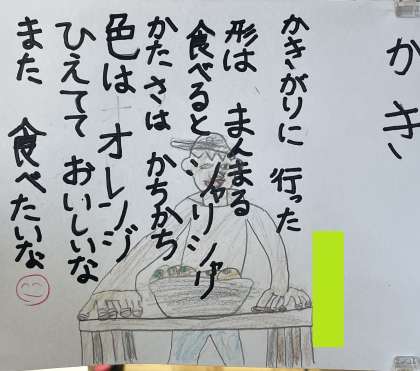 かき
かきがりに 行った
形は まんまる
食べると シャリシャリ
かたさは かちかち
色は オレンジ
ひえてて おいしいな
また 食べたいな